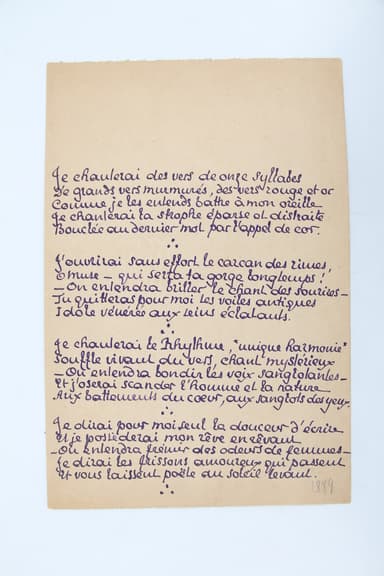 Je chanterai des vers de onze syllabes
De grands vers murmurés, des vers rouge et or
Comme je les entends battre à mon oreille
Je chanterai la strophe éparse et distraite
Bouclée au dernier mot par l'appel de cor.
J'ouvrirai sans effort le carcan des rimes,
O muse – qui serra ta gorge longtemps !
– On entendra briller le chant des sourires –
Tu quitteras pour moi les voiles antiques
Idole vénérée aux seins éclatants.
Je chanterai le Rhythme, "unique harmonie"
Souffle vivant du vers, chant mystérieux
– On entendra bondir les voix sanglotantes –
Et j'oserai scander l'homme et la nature
Aux battements du cœur, aux sanglots des yeux.
Je dirai pour moi seul la douceur d'écrire
Et je posséderai mon rêve en rêvant
– On entendra frémir des odeurs de femmes –
Je dirai les frissons amoureux qui passent
Et vous laissent poète au soleil levant.